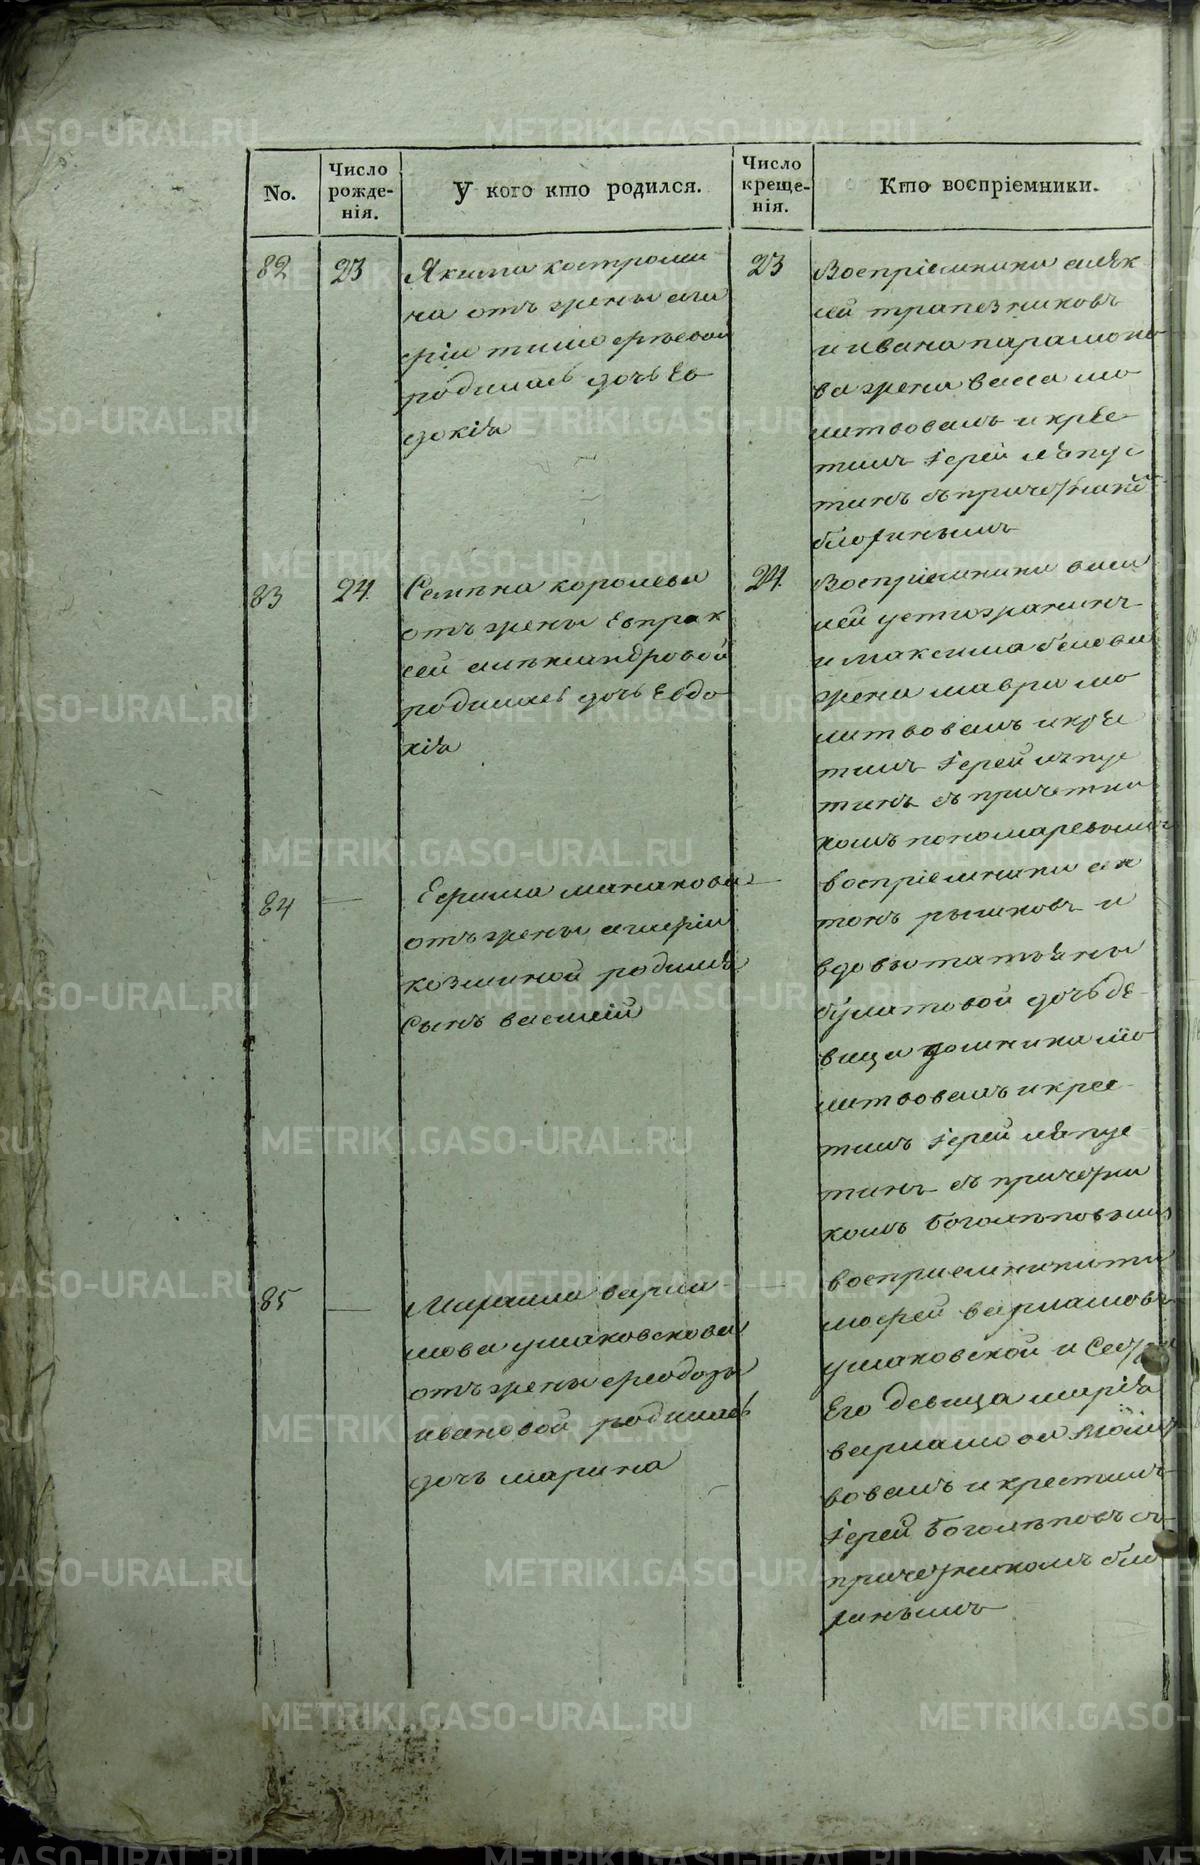 No.
Число рожденія.
У кого кто родился.
Число крещенія.
Кто воспріемники.
82
23
Якима костроми
на отъ жены ма
ріи тимофеевой
родилась дочь Ев
докія
23
Воспріемники алек
сей трапезниковъ
и ивана парамоно
ва жена васса мо
литвовалъ и крес
тилъ Іерей
съ причетником
83
24.
Семена королева
отъ жены Евпрак
сеи александровой
родилась дочь Евдо
кія
24.
Воспріемники васи
лей устюжанинъ
и максима белова
жена мавра мо
литвовалъ и крес
тилъ Іерей
съ причетни
комъ пономаревымъ
84
—
Ефима манакова
отъ жены маріи
козминой родился
Сынъ василій
—
воспріемники ан
тонъ рычковъ и
вдовы татьяны
булатовой дочь де
вица домника мо
литвовалъ и крес
тилъ Іерей
съ причетни
комъ Боголеповымъ
85
—
Михаила варла
мова ушаковскова
отъ жены феодоры
ивановой родилась
дочь марина
—
восприемники ти
мофей варламовъ
ушаковской и Сестра
Его девица марія
варламова молит
вовалъ и крестилъ
Іерей Боголеповъ съ
причетникомъ
METRIKI.GASO-URAL.RU